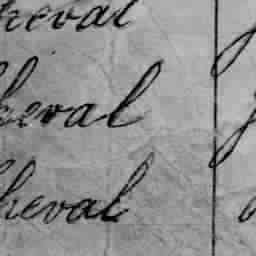 cheval
cheval
cheval